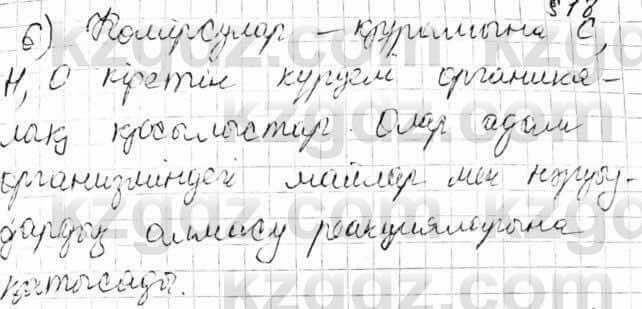 §18
б) Көмірсулар – құрамына С,
Н, О кіретін күрделі органика-
лық қосылыстар. Олар адам
организміндегі майлар мен нәруыз-
дардың алмасу реакцияларына
қатысады.